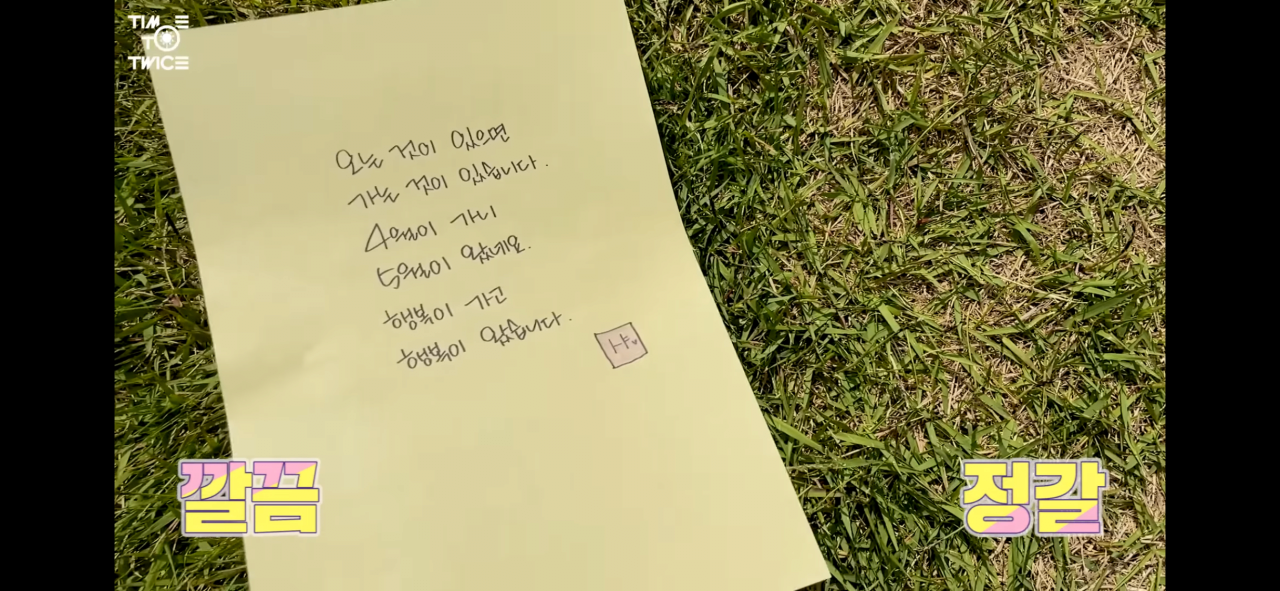 TIME
TO
TWICE
오는 것이 있으면
가는 것이 있습니다.
4월이 가니
5월이 왔네요.
행복이 가고
행복이 왔습니다.
샤♥
깔끔
정갈